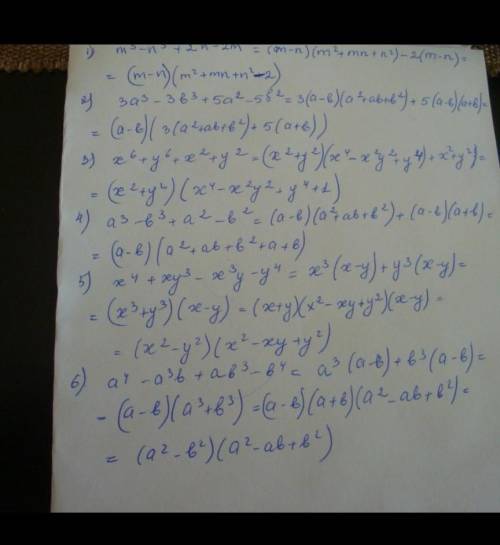 1) m³-n³+2n-2m = (m-n)(m²+mn+n²)-2(m-n)=
= (m-n)(m²+mn+n²-2)
2) 3a³-3b³+5a²-5b²=3(a-b)(a²+ab+b²)+5(a-b)(a+b)=
= (a-b)(3(a²+ab+b²)+5(a+b))
3) x⁶+y⁶+x²+y²=(x²+y²)(x⁴-x²y²+y⁴)+x²+y²)=
= (x²+y²)(x⁴-x²y²+y⁴+1)
4) a³-b³+a²-b²=(a-b)(a²+ab+b²)+(a-b)(a+b)=
= (a-b)(a²+ab+b²+a+b)
5) x⁴+xy³-x³y-y⁴= x³(x-y)+y³(x-y)=
= (x³+y³)(x-y) = (x+y)(x²-xy+y²)(x-y)=
= (x²-y²)(x²-xy+y²)
6) a⁴-a³b+ab³-b⁴= a³(a-b)+b³(a-b)=
- (a-b)(a³+b³)=(a-b)(a+b)(a²-ab+b²)=
= (a²-b²)(a²-ab+b²)